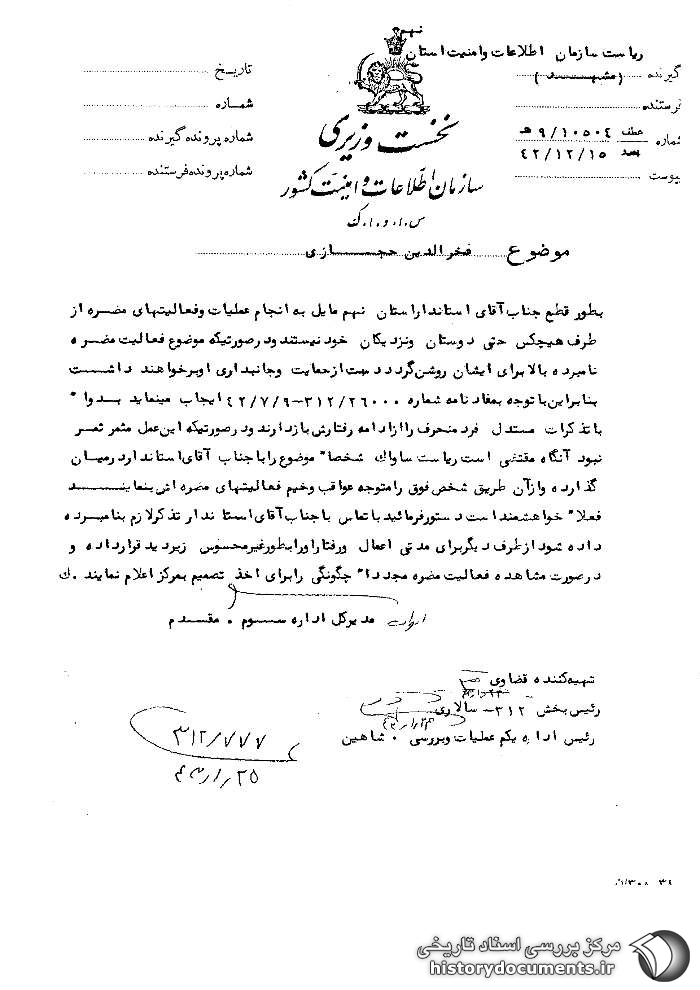 ریاست سازمان اطلاعات وامنیت استان نهم
گیرنده (مشهد)
فرستنده
شماره عطف ۹/۱۰۵۰۴ هـ
۴۲/۱۲/۱۵
پیوست
تاریخ
شماره
شماره پرونده گیرنده
شماره پرونده فرستنده
نخست وزیری
سازمان اطلاعات و امنیت کشور
س.ا.و.ا.ک
موضوع فخرالدین حجازی
بطور قطع جناب آقای استاندار استان نهم مایل به انجام عملیات وفعالیتهای مضره از
طرف هیچکس حتی دوستان ونزدیکان خود نیستند ودرصورتیکه موضوع فعالیت مضره
نامبرده بالا برای ایشان روشن گردد دست از حمایت وجانبداری او برخواهند داشت
بنابراین با توجه بمفاد نامه شماره ۳۱۲/۲۶۰۰۰-۴۲/۷/۹ ایجاب مینماید بدوا"
با تذکرات مستدل فرد منحرف را از ادامه رفتارش بازدارند ودرصورتیکه این عمل مثمر ثمر
نبود آنگاه مقتضی است ریاست ساواک شخصا" موضوع را با جناب آقای استاندار درمیان
گذارده وازآن طریق شخص فوق را متوجه عواقب وخیم فعالیتهای مضره اش بنمایند
فعلا" خواهشمند است دستور فرمائید با تماس با جناب آقای استاندار تذکر لازم بنامبرده
داده شود از طرف دیگر برای مدتی اعمال ورفتار اورا بطور غیر محسوس زیر دید قرار داده و
درصورت مشاهده فعالیت مضره مجددا" چگونگی را برای اخذ تصمیم بمرکز اعلام نمایند .ک
مدیرکل اداره سوم . مقدم
تهیه کننده قضاوی
رئیس بخش ۳۱۲- سالاری
رئیس اداره یکم عملیات وبررسی . شاهین
۳۱۲/۷۷۷
۴۳/۱/۲۵
مرکز بررسی اسناد تاریخی
historydocuments.ir